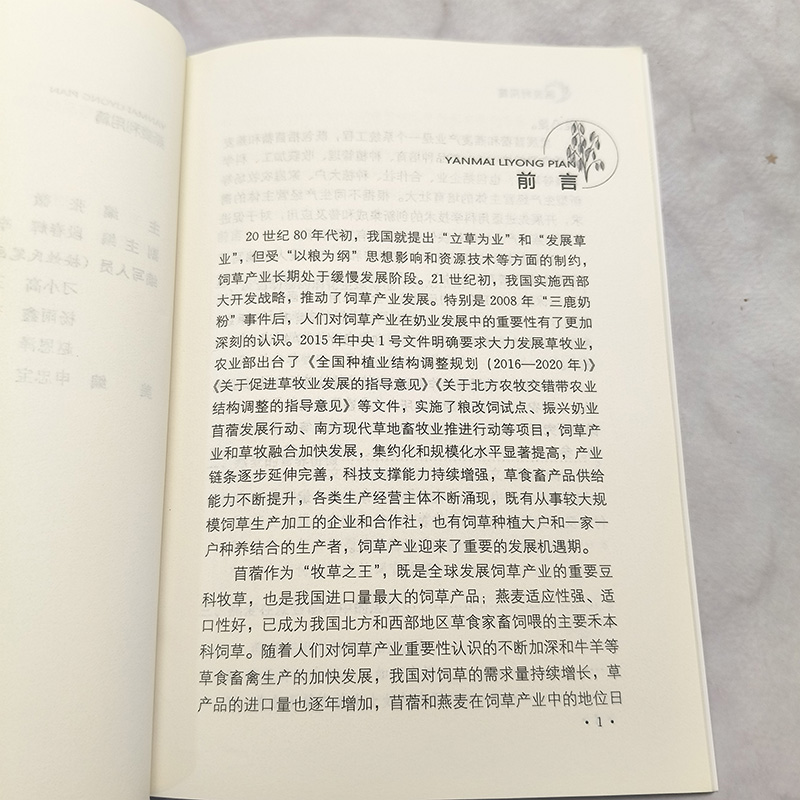 YANMAI LIYONG PIAN
前 言
20 世纪 80 年代初，我国就提出“立草为业”和“发展草
业”，但受“以粮为纲”思想影响和资源技术等方面的制约，
饲草产业长期处于缓慢发展阶段。21 世纪初，我国实施西部
大开发战略，推动了饲草产业发展。特别是 2008 年“三鹿奶
粉”事件后，人们对饲草产业在奶业发展中的重要性有了更加
深刻的认识。2015 年中央 1 号文件明确要求大力发展草牧业，
农业部出台了《全国种植业结构调整规划（2016—2020 年）》
《关于促进草牧业发展的指导意见》《关于北方农牧交错带农业
结构调整的指导意见》等文件，实施了粮改饲试点、振兴奶业
苜蓿发展行动、南方现代草地畜牧业推进行动等项目，饲草产
业和草牧融合加快发展，集约化和规模化水平显著提高，产业
链条逐步延伸完善，科技支撑能力持续增强，草食畜产品供给
能力不断提升，各类生产经营主体不断涌现，既有从事较大规
模饲草生产加工的企业和合作社，也有饲草种植大户和一家一
户种养结合的生产者，饲草产业迎来了重要的发展机遇期。
苜蓿作为“牧草之王”，既是全球发展饲草产业的重要豆
科牧草，也是我国进口量最大的饲草产品；燕麦适应性强、适
口性好，已成为我国北方和西部地区草食家畜饲喂的主要禾本
科饲草。随着人们对饲草产业重要性认识的不断加深和牛羊等
草食畜禽生产的加快发展，我国对饲草的需求量持续增长，草
产品的进口量也逐年增加，苜蓿和燕麦在饲草产业中的地位日
· 1 ·